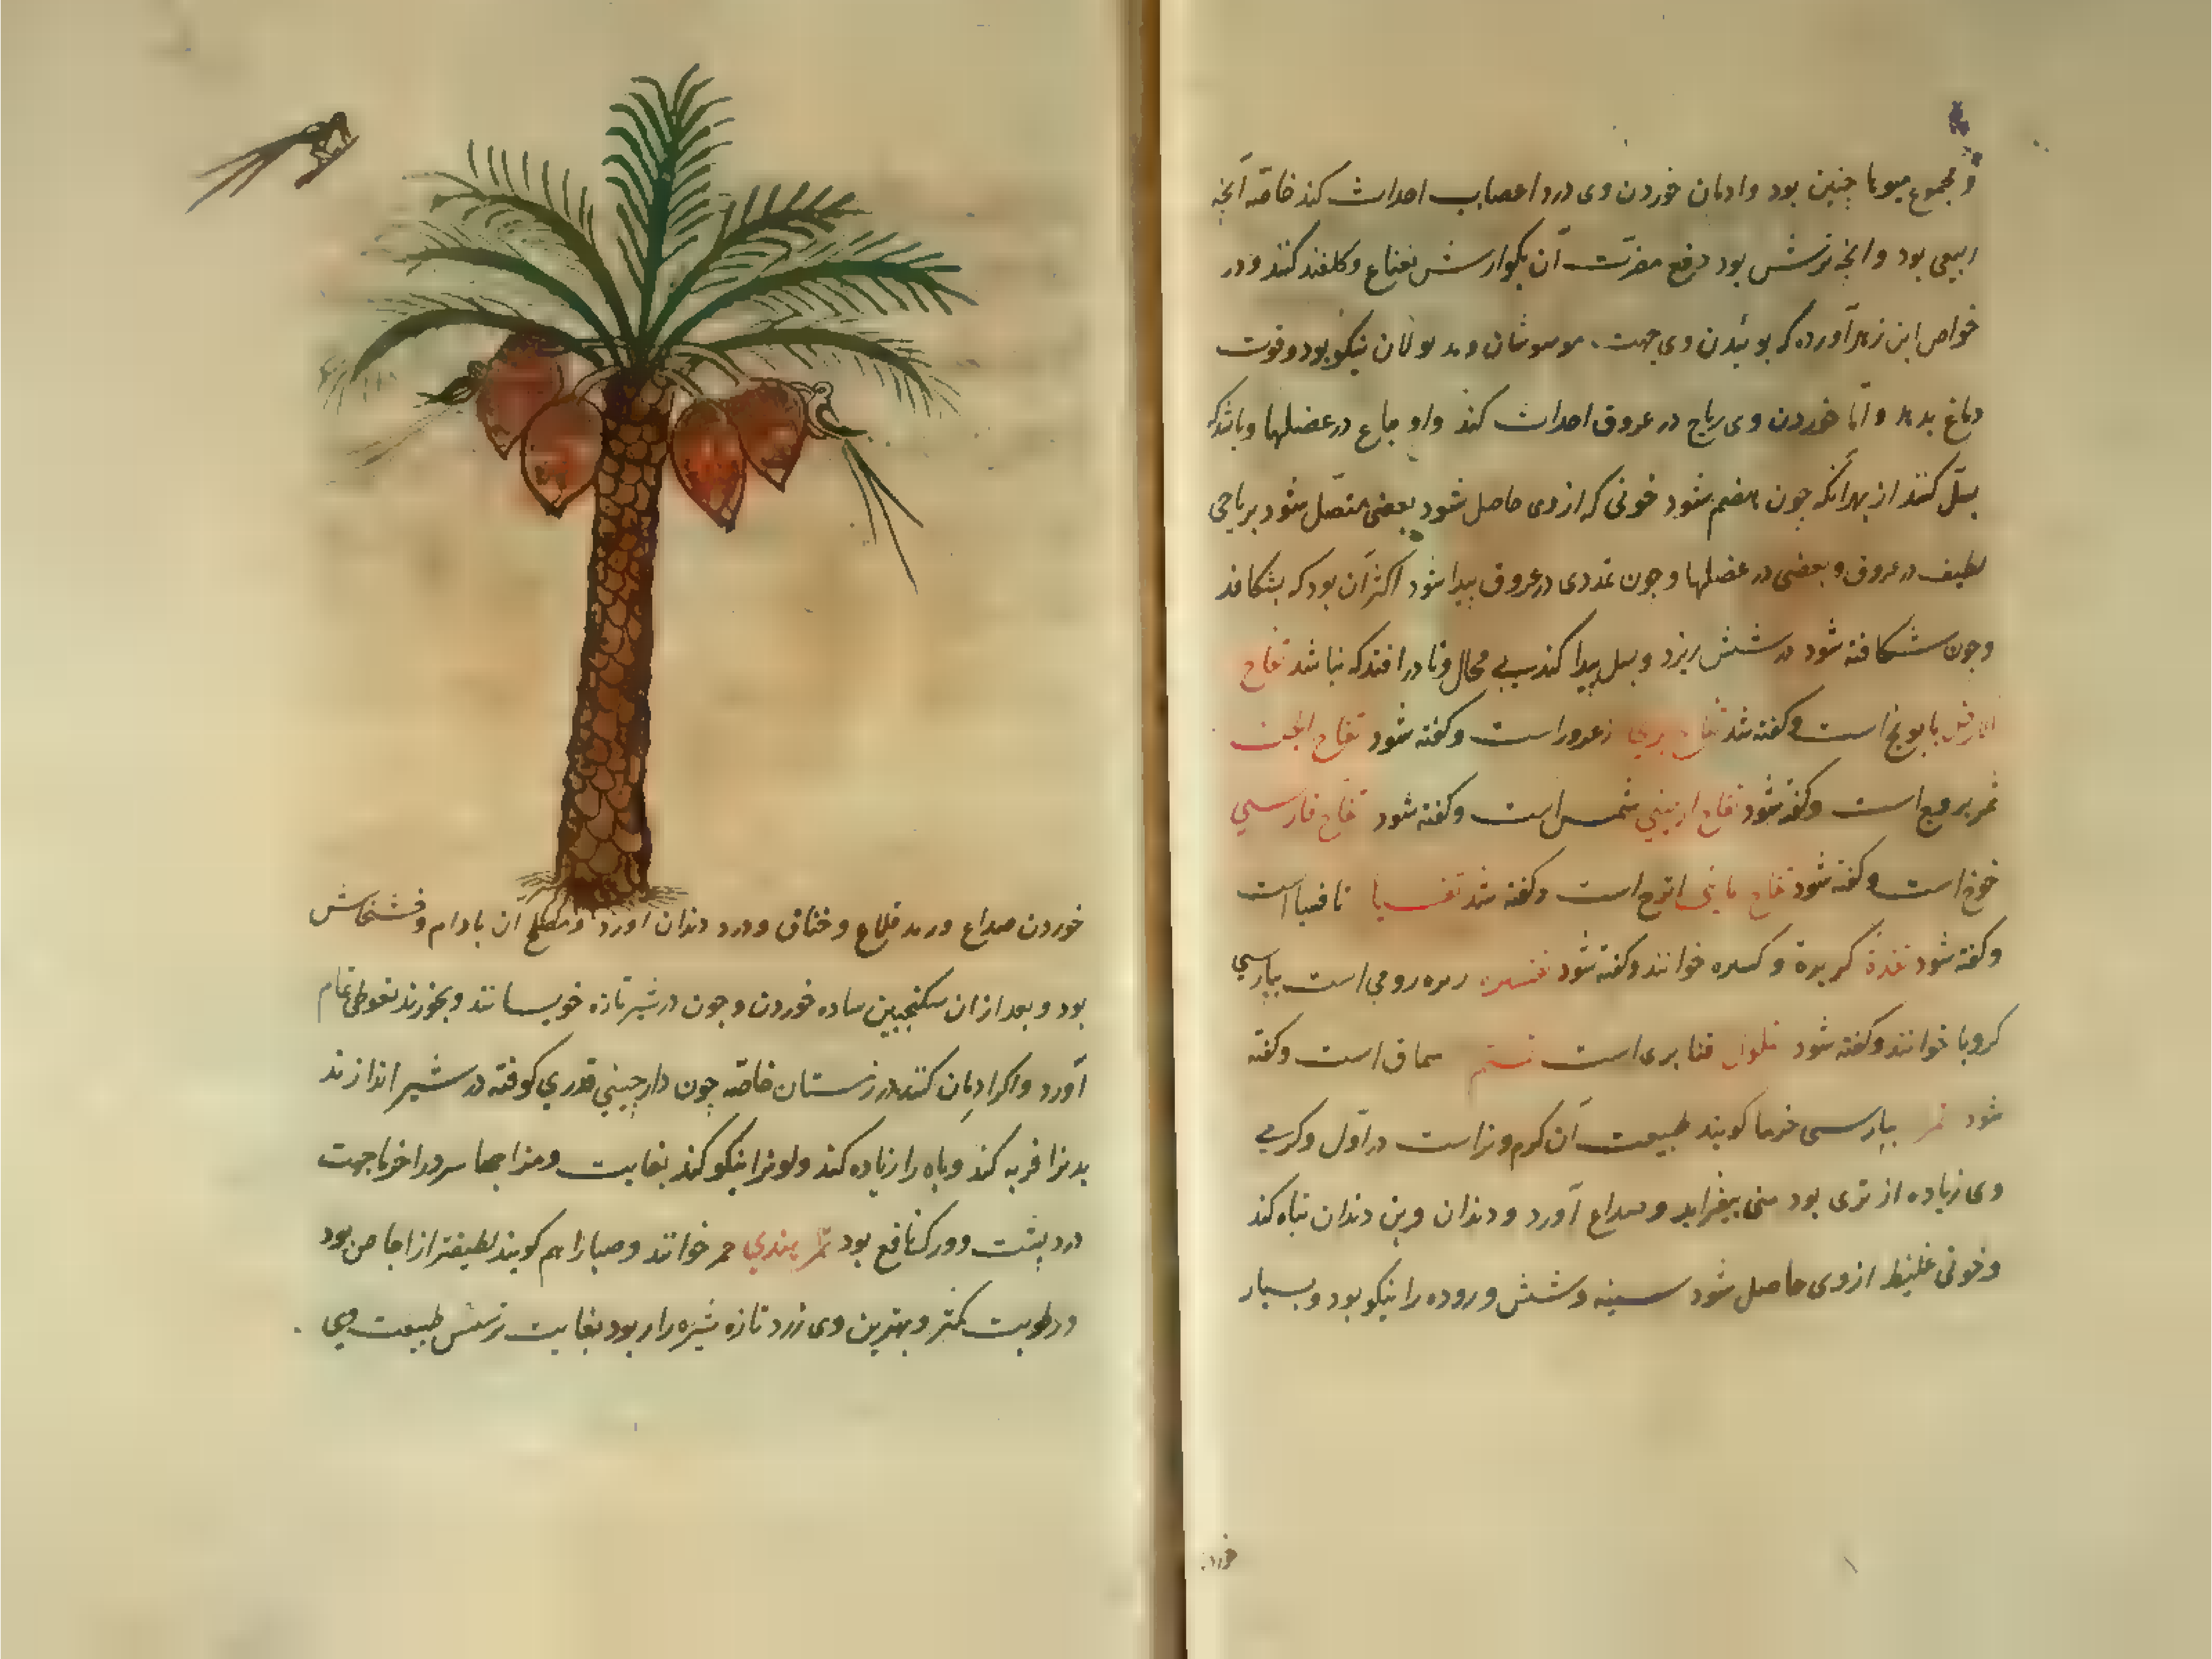 و مجموع میوها چنین بود و ادمان خوردن وی درد اعصاب احداث کند خاصّه آنچه
ربیعی بود و آنچه ترش بود دفع مضرّت آن بکوارش نعناع و کلقند کنند و در
خواص ابن زهر آورده که بوئیدن وی جهت موسوسان و مدبولان نیکو بود و قوت
دماغ بدهد و امّا خوردن وی ریاح در عروق احداث کند و اوجاع در عضلها و باشد که
بسلّ کشد از بهر آنکه چون هضم شود خونی که از وی حاصل شود بعضی متصّل شود بریاحی
لطیف در عروق و بعضی در عضلها و چون غددی در عروق پیدا شود اکثر آن بود که بشکافد
و چون شکافته شود در شش ریزد و سل پیدا کند بی محال و نادر افتد که نباشد تفاح
الارض بابونج است و کفته شد تفاح بری زعرور است و کفته شود تفاح الجن
ثمر یبروج است و کفته شود تفاح ارمینی مشمس است و کفته شود تفاح فارسی
خوخ است و کفته شود تفاح مایی اترج است و کفته شد تفسیا تافسیا است
و کفته شود تقدة کزبرة و کسبره خوانند و کفته شود رومی است بپارسی
کرویا خوانند و کفته شود تملول قنابری است تمتم سماق است و کفته
شود تمر بپارسی خرما کویند طبیعت آن کرم و تر است در اوّل و کرمی
وی زیاده از تری بود منی بیفزاید و صداع آورد و دندان و بن دندان تباه کند
و خونی غلیظ از وی حاصل شود سینه و شش و روده را نیکو بود و بسیار
خوردن
خوردن صداع و رمد قلاع و خناق و درد دندان آورد و مصلح آن بادام و خشخاش
بود و بعد از ان سکنجبین ساده خوردن و چون در شیر تازه خویسانند و بخورند نعوظی تمام
آورد و اکر ادمان کنند در زمستان خاصّه چون دارچینی قدری کوفته در شیر اندازند
بدنرا فربه کند و باه را زیاده کند و لونرا نیکو کند بغایت و مزاجها سرد را خرما جهت
درد پشت و ورک نافع بود تمر هندی حمر خوانند و صبارا هم کویند لطیفتر از اجاص بود
و رطوبت کمتر و بهترین وی زرد تازه شیره دار بود بغایت ترشش طبیعت وی